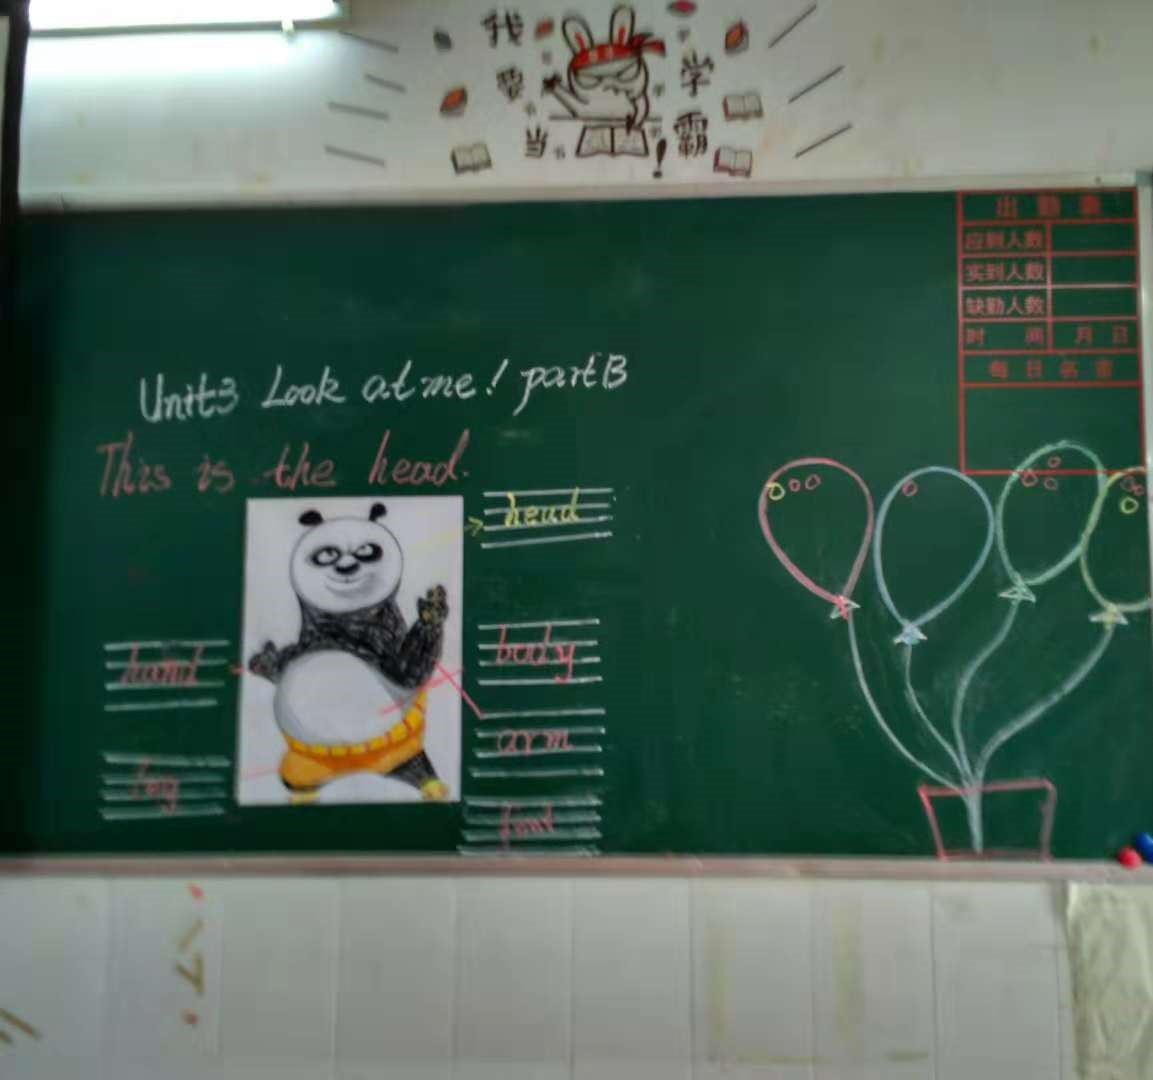 我要当学霸!
出勤表
应到人数
实到人数
缺勤人数
时 间 月 日
每日名言
Unit3 Look at me! part B
This is the head.
head
hand
body
arm
leg
foot